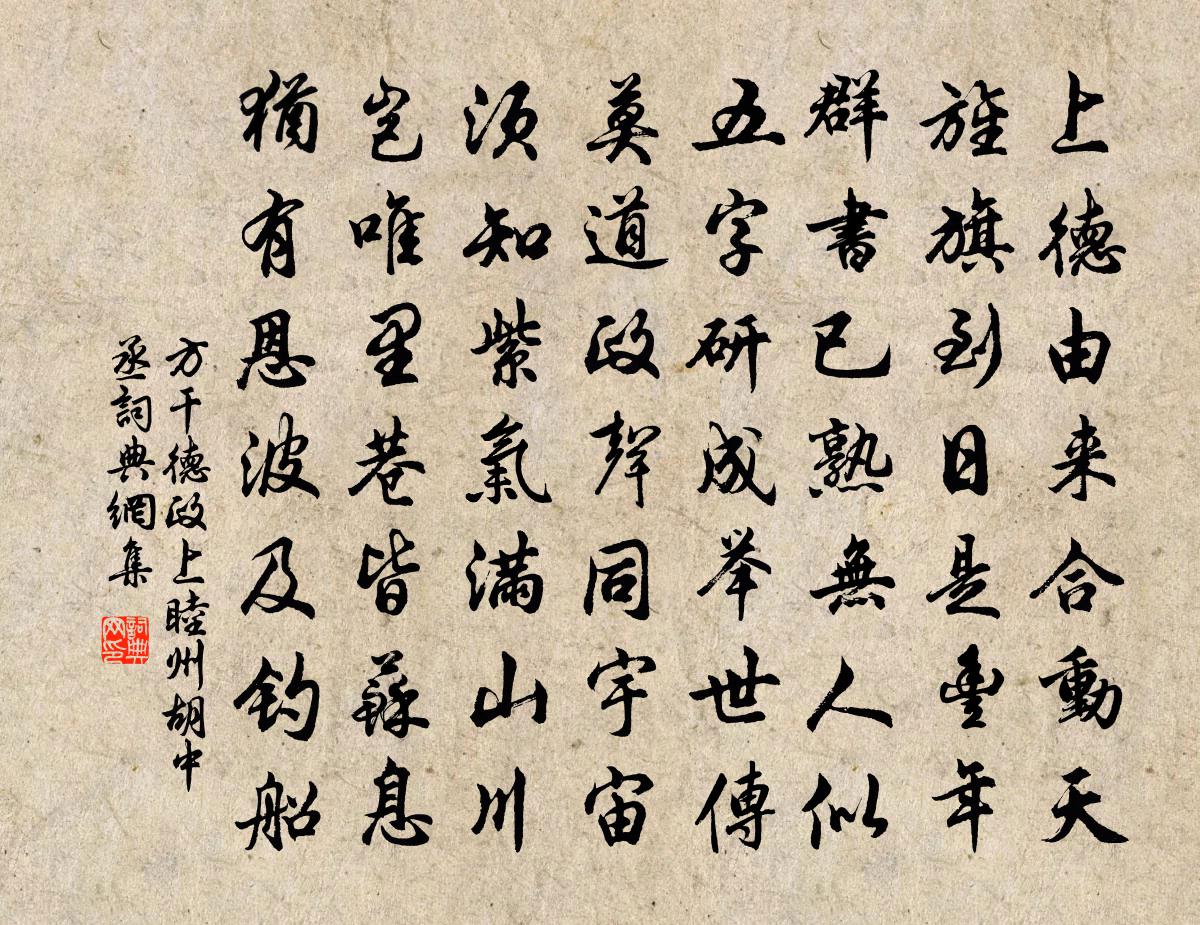 上德由来合動天
旌旗到日是豊年
群書已熟無人似
五字研成举世傳
莫道政聲同宇宙
須知紫氣滿山川
豈唯里巷皆蘇息
猶有恩波及釣船
方干德政上睦州胡中
丞詞典網集
詞典
网印